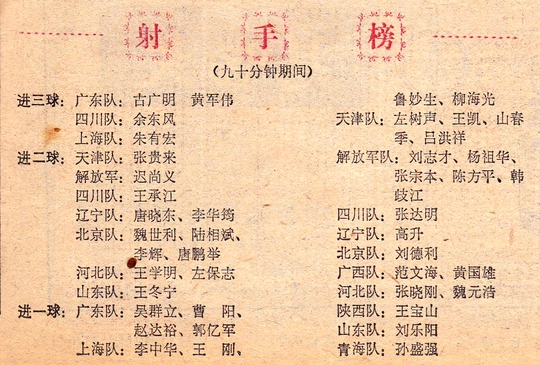 射手榜
(九十分钟期间)
进三球：广东队：古广明 黄军伟
四川队：余东风
上海队：朱有宏
进二球：天津队：张贵来
解放军：迟尚义
四川队：王承江
辽宁队：唐晓东、李华筠
北京队：魏世利、陆相斌、
李辉、唐鹏举
河北队：王学明、左保志
山东队：王冬宁
进一球：广东队：吴群立、曹 阳、
赵达裕、郭亿军
上海队：李中华、王 刚、
鲁妙生、柳海光
天津队：左树声、王凯、山春
季、吕洪祥
解放军队：刘志才、杨祖华、
张宗本、陈方平、韩
歧江
四川队：张达明
辽宁队：高升
北京队：刘德利
广西队：范文海、黄国雄
河北队：张晓刚、魏元浩
陕西队：王宝山
山东队：刘乐阳
青海队：孙盛强